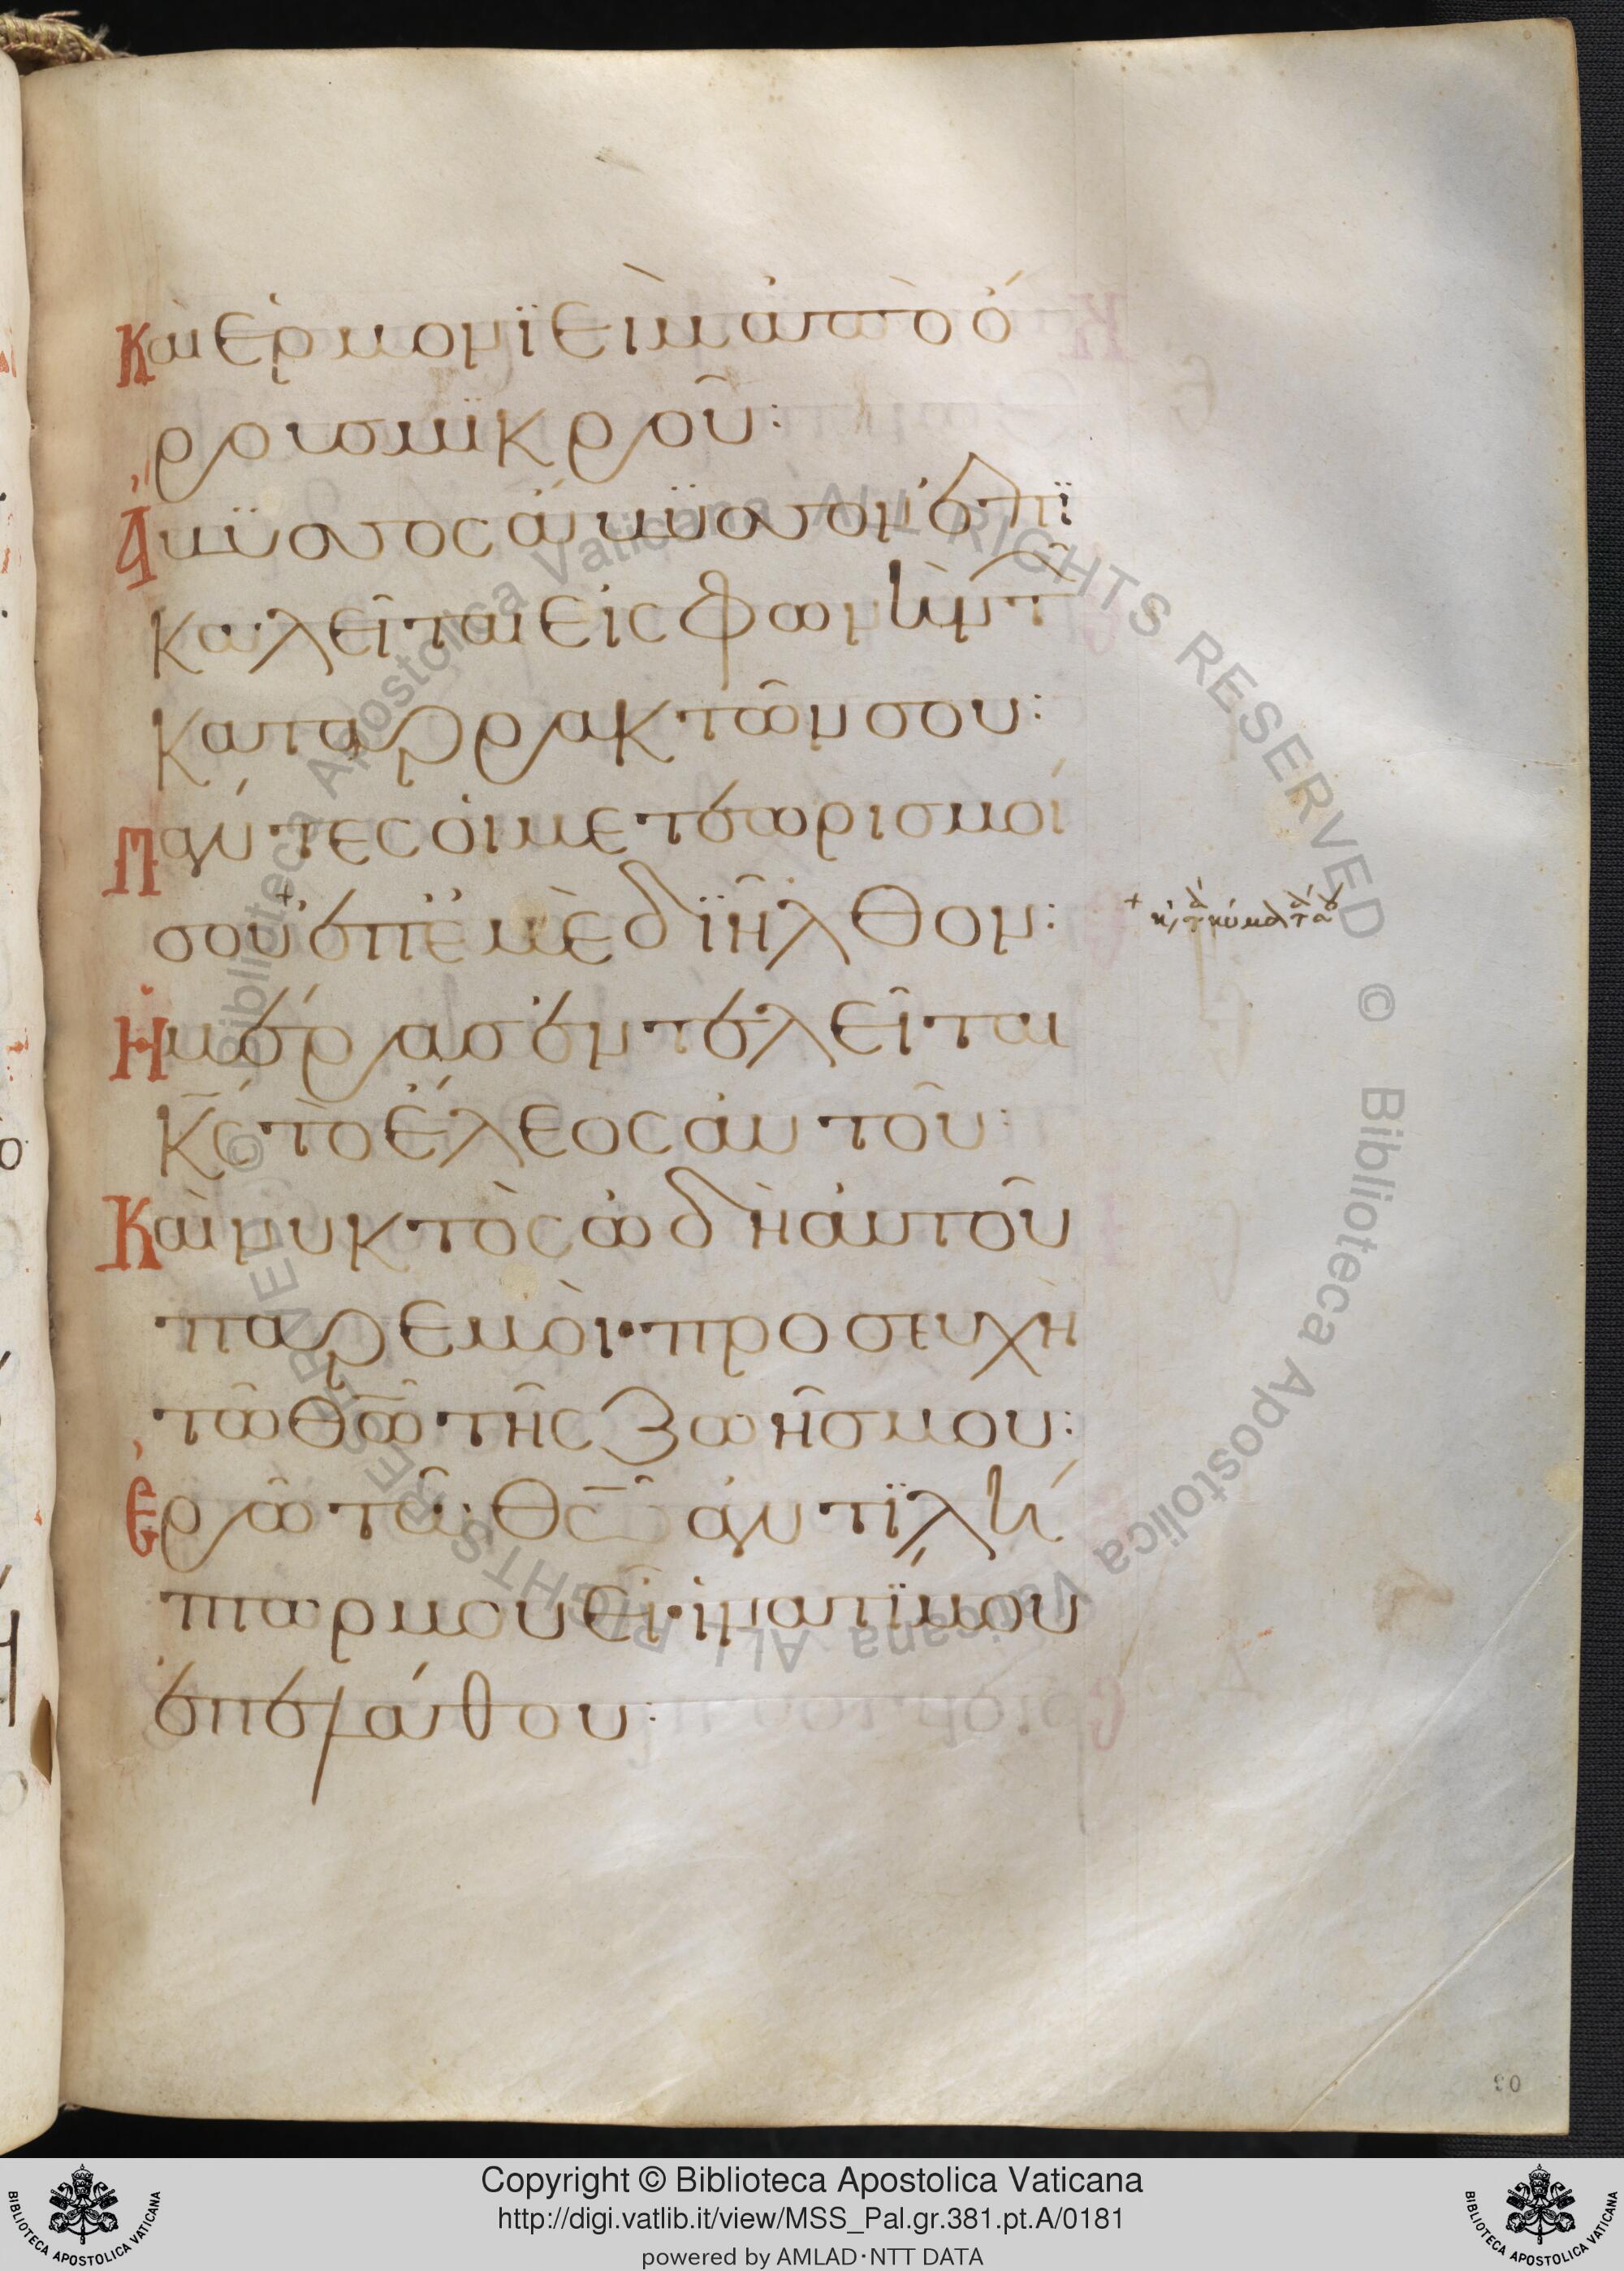 Καὶ ἑρμονϊεὶμ ἀπὸ ὄ
ρους μϊκροῦ:
Ἄβϋσσος ἄβϋσσον ἐπϊ
καλεῖται εἰς φωνὴν τῶν
καταρρακτῶν σου:
Πάντες οἱ μετεωρισμοί
σου ἐπ' ἐμὲ δϊῆλθον:
+ κ(αὶ) τὰ κύματά σου
Ἡμέρας ἐντελεῖται
κ̅ς̅ τὸ ἔλεος αὐτοῦ:
Καὶ νυκτὸς ὠδὴ αὐτοῦ
παρ' ἐμοὶ· προσευχὴ
τῶ θ̅ῶ̅ τῆς ζωῆς μου:
Ἐρῶ τῶ θ̅ῶ̅ ἀντϊλή
πτωρ μου εἶ· ἱνατί μου
ἐπελάθου:
90
Copyright © Biblioteca Apostolica Vaticana
http://digi.vatlib.it/view/MSS_Pal.gr.381.pt.A/0181
powered by AMLAD·NTT DATA
BIBLIOTECA APOSTOLICA VATICANA
BIBLIOTECA APOSTOLICA VATICANA
© Biblioteca Apostolica Vaticana ALL RIGHTS RESERVED
© Biblioteca Apostolica Vaticana ALL RIGHTS RESERVED